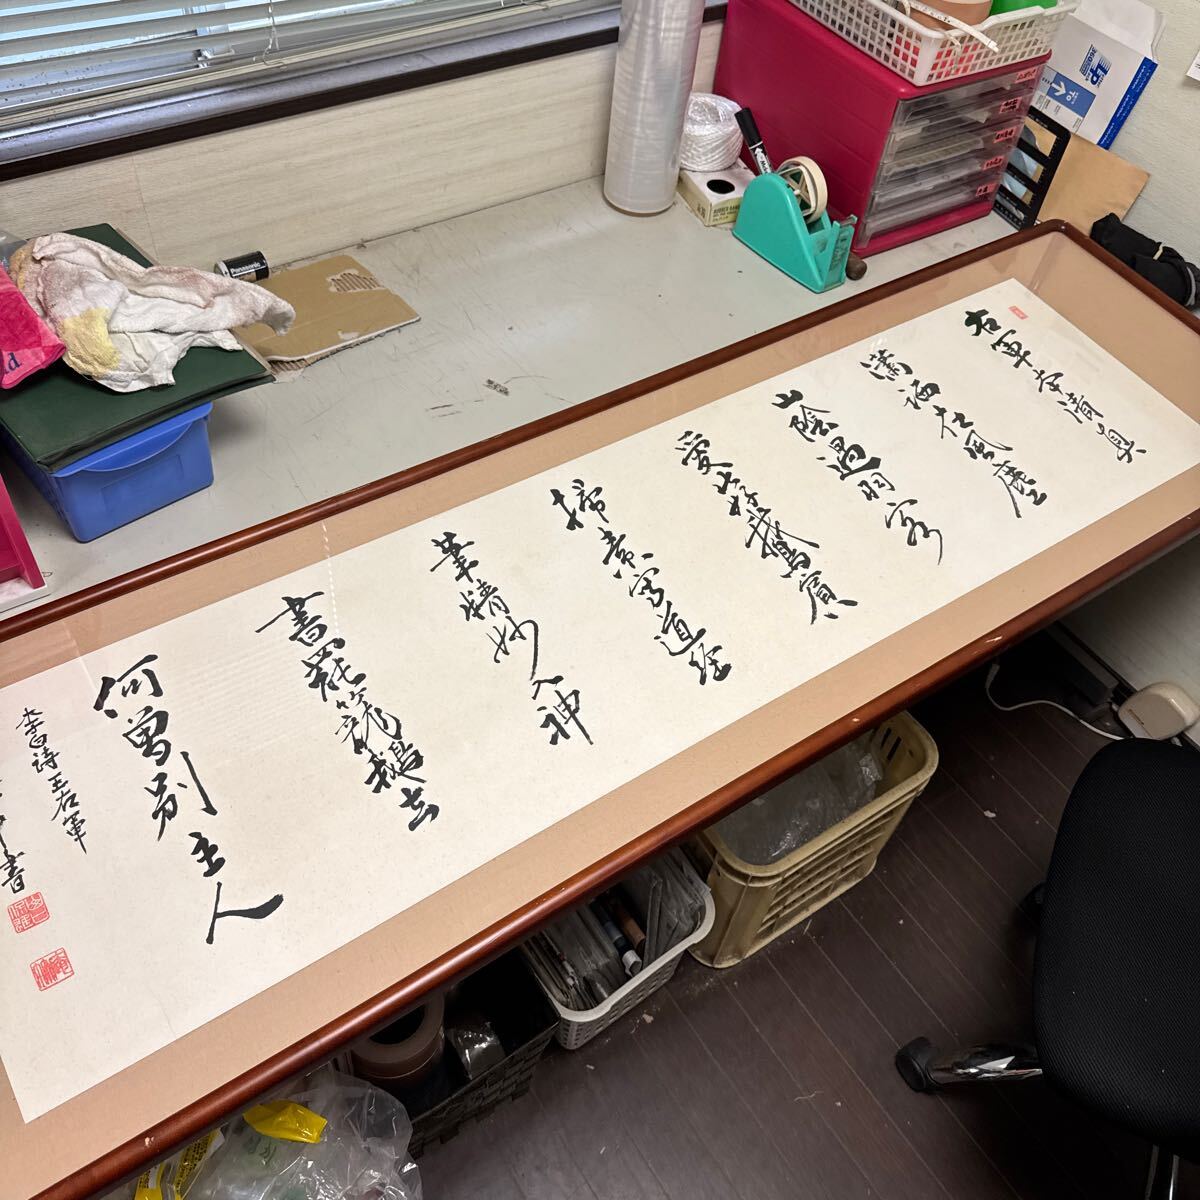 右軍本清真
瀟洒在風塵
山陰過羽客
愛此好鵝賓
掃素寫道經
筆精妙入神
書罷籠鵝去
何曽別主人
李白詩王右軍
書
Panasonic
RUBBER BAND